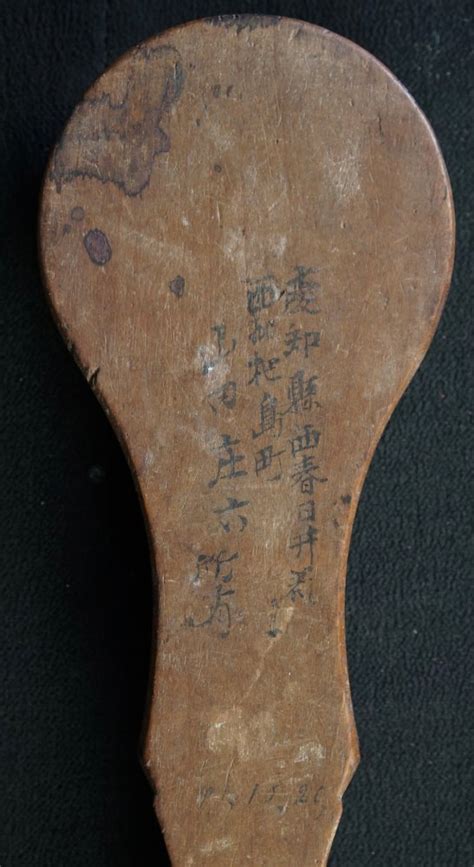 愛知縣西春日井郡
西枇杷島町
田庄六所有
15, 26,